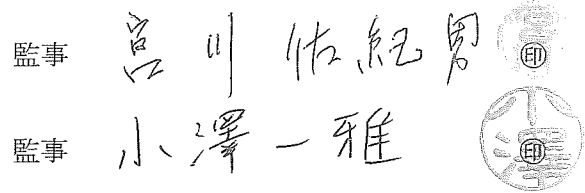 監事 宮川佑紀男 ㊞
監事 小澤一雅 ㊞